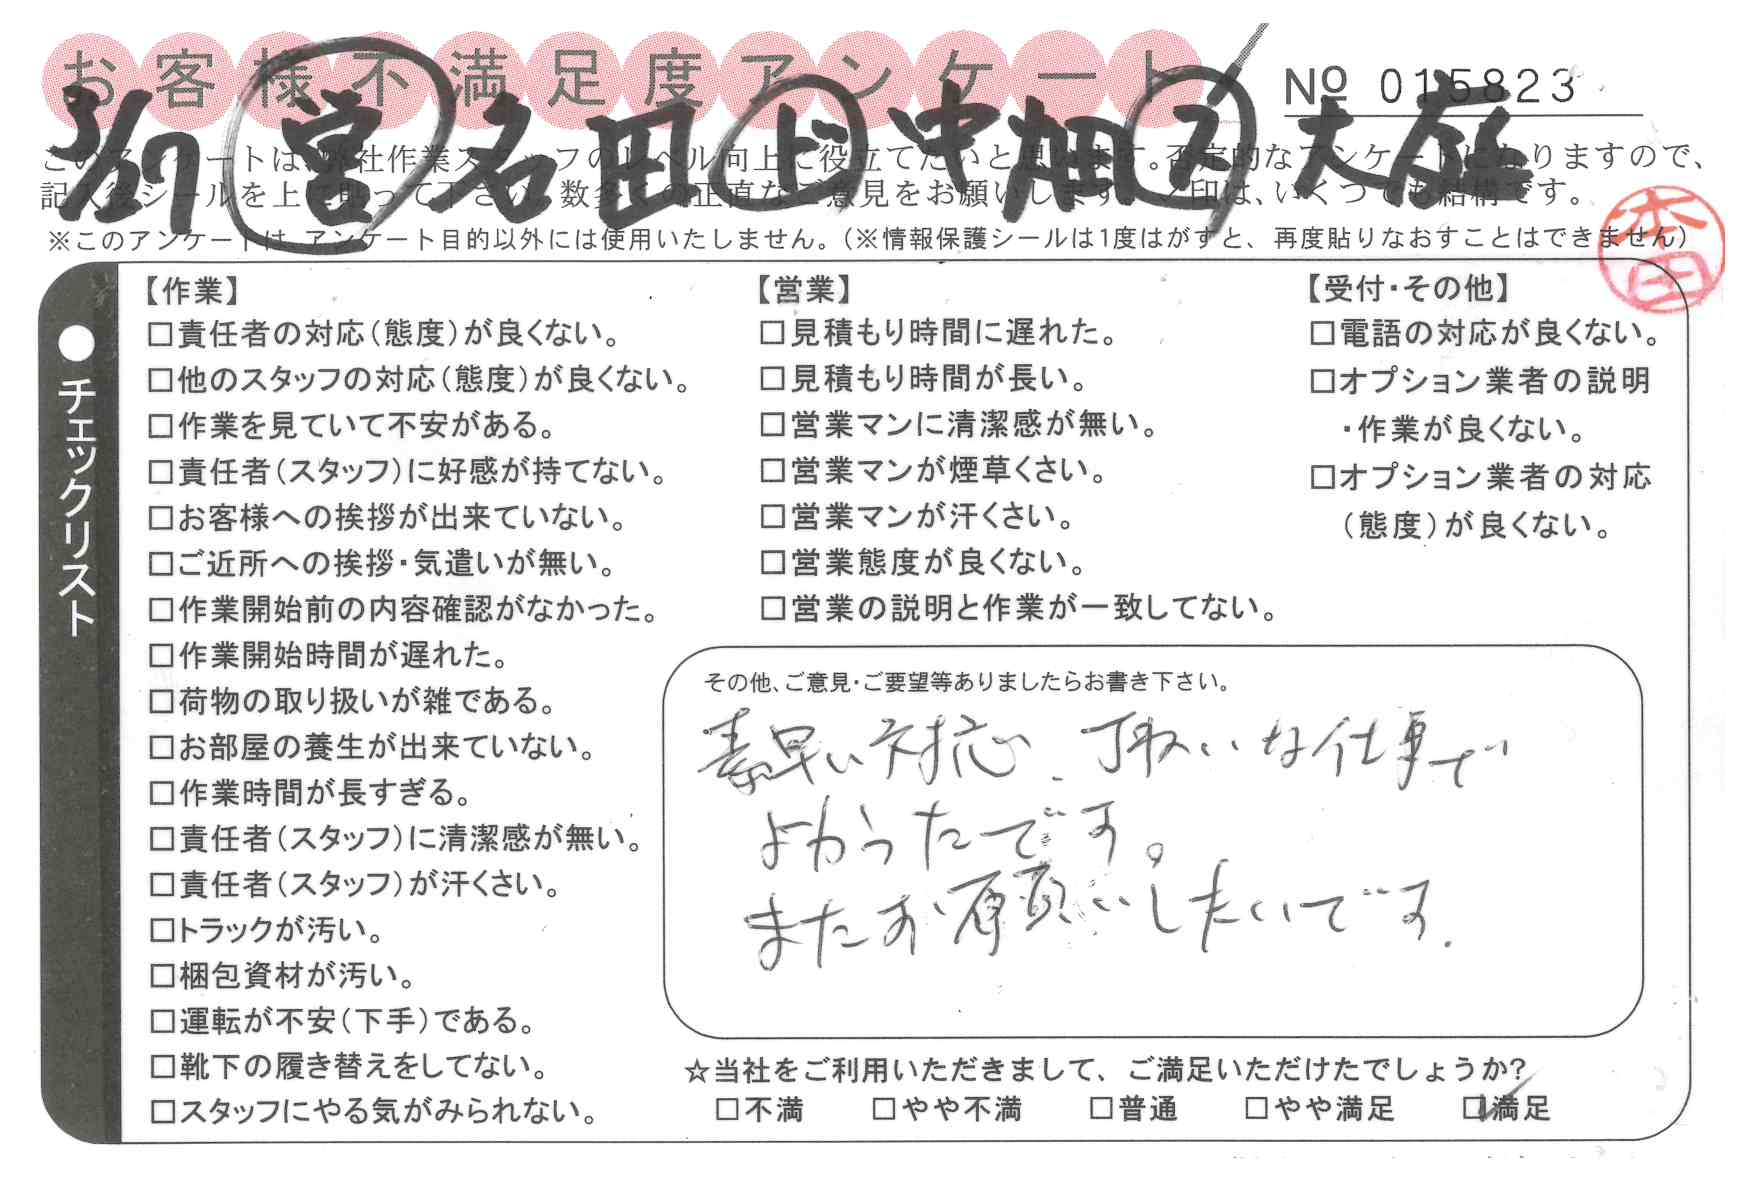 お客様不満足度アンケート
No 015823
3/27 営 名田 上 中畑 ス 大庭
このアンケートは、弊社作業スタッフのレベル向上に役立てたいと思います。否定的なアンケートになりますので、
記入後シールを上に貼って下さい。数多くの正直なご意見をお願いします。✓印は、いくつでも結構です。
※このアンケートは、アンケート目的以外には使用いたしません。(※情報保護シールは1度はがすと、再度貼りなおすことはできません)
本田
●チェックリスト
【作業】
□責任者の対応(態度)が良くない。
□他のスタッフの対応(態度)が良くない。
□作業を見ていて不安がある。
□責任者(スタッフ)に好感が持てない。
□お客様への挨拶が出来ていない。
□ご近所への挨拶・気遣いが無い。
□作業開始前の内容確認がなかった。
□作業開始時間が遅れた。
□荷物の取り扱いが雑である。
□お部屋の養生が出来ていない。
□作業時間が長すぎる。
□責任者(スタッフ)に清潔感が無い。
□責任者(スタッフ)が汗くさい。
□トラックが汚い。
□梱包資材が汚い。
□運転が不安(下手)である。
□靴下の履き替えをしてない。
□スタッフにやる気がみられない。
【営業】
□見積もり時間に遅れた。
□見積もり時間が長い。
□営業マンに清潔感が無い。
□営業マンが煙草くさい。
□営業マンが汗くさい。
□営業態度が良くない。
□営業の説明と作業が一致してない。
【受付・その他】
□電話の対応が良くない。
□オプション業者の説明
・作業が良くない。
□オプション業者の対応
(態度)が良くない。
その他、ご意見・ご要望等ありましたらお書き下さい。
素早い対応、丁寧な仕事で
よかったです。
またお願いしたいです.
☆当社をご利用いただきまして、ご満足いただけたでしょうか?
□不満 □やや不満 □普通 □やや満足 ☑満足